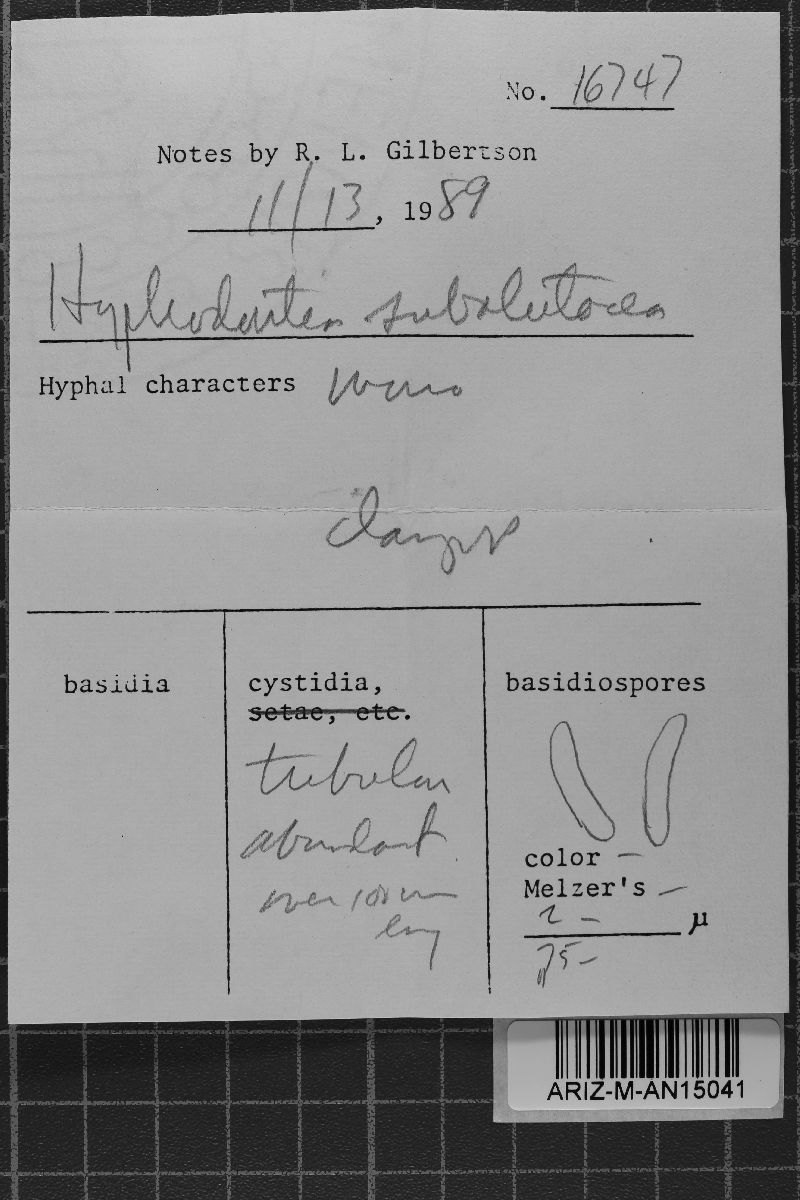 No. 16747
Notes by R. L. Gilbertson
11/13, 1989
Hyphodontia subalutacea
Hyphal characters mono
clamps
basidia
cystidia,
setae, etc.
tubular
abundant
over 100 um
long
basidiospores
color —
Melzer's —
2 – μ
ARIZ-M-AN15041